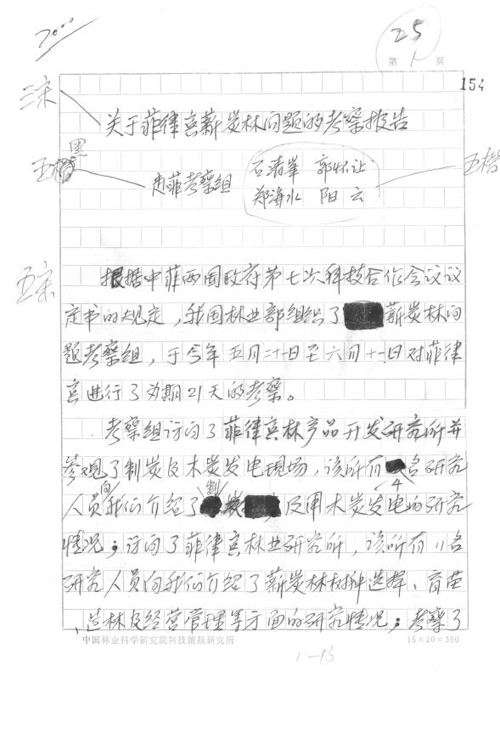 2000
25
第 1 页
154
三宋
关于菲律宾薪炭林问题的考察报告
五楷 黑
赴菲考察组
石清峯 郭怀让
郑海水 阳云
五楷
五宋
根据中菲两国政府第七次科技合作会议议
定书的规定，我国林业部组织了薪炭林问
题考察组，于今年五月二十日至六月十日对菲律
宾进行了为期21天的考察。
考察组访问了菲律宾林产品开发研究所并
参观了制炭及木炭发电现场，该所有4名研究
人员向我们介绍了制炭及用木炭发电的研究
情况；访问了菲律宾林业研究所，该所有11名
研究人员向我们介绍了薪炭林树种选择、育苗
、造林及经营管理等方面的研究情况；考察了
中国林业科学研究院科技情报研究所
15×20=300
1-13